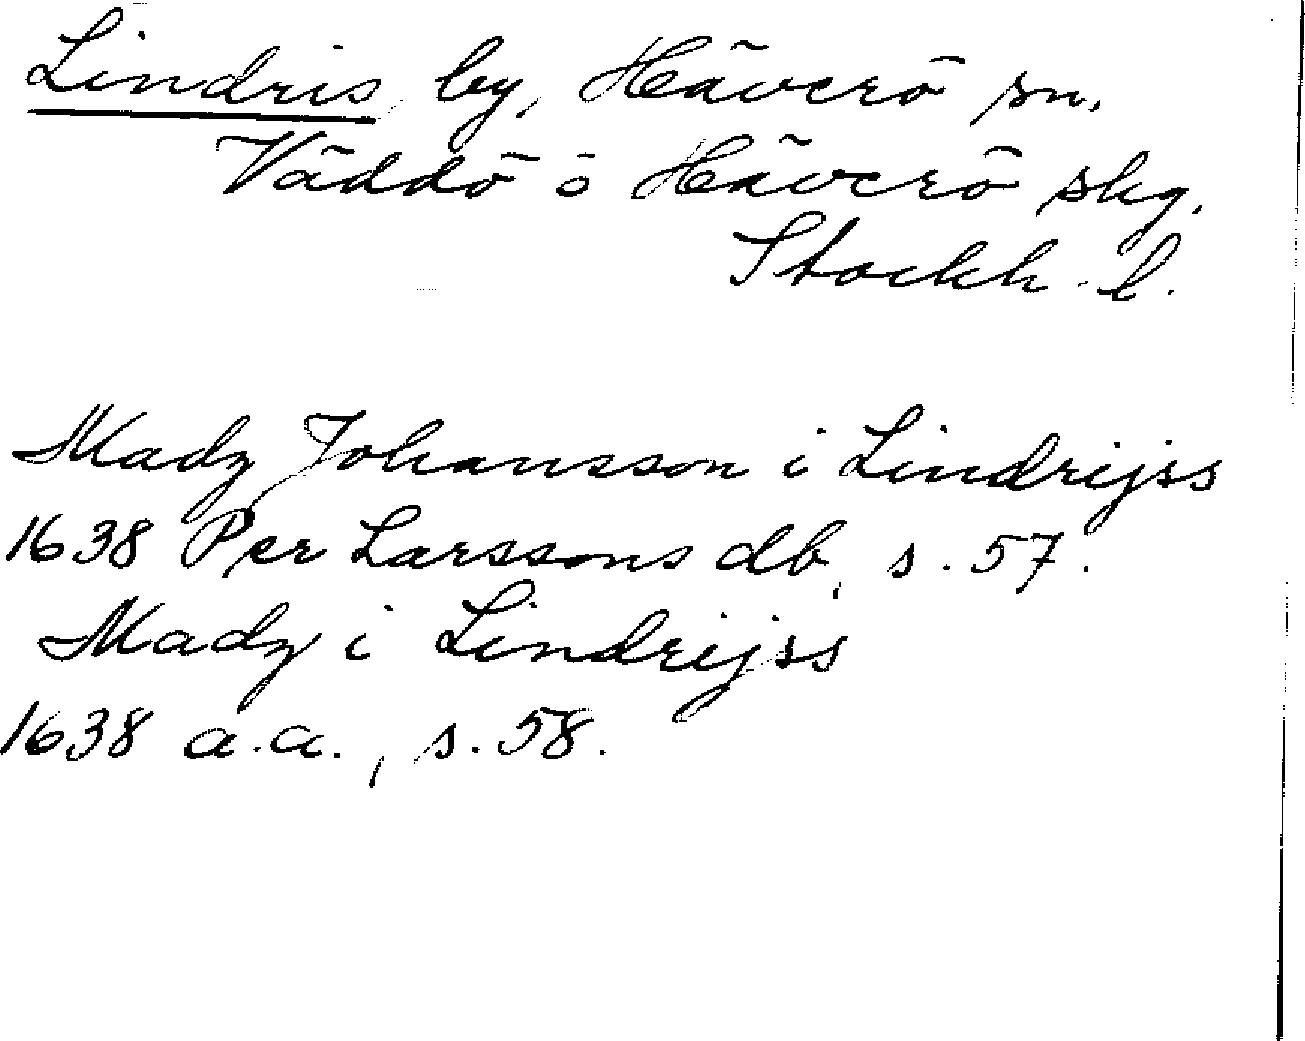 Lindris, by, Häverö sn.
Väddö o Häverö skg.
Stockh. l.
Madz Johansson i Lindrijss
1638 Per Larssons db, s. 57.
Madz i Lindrijss
1638 a.a., s. 58.